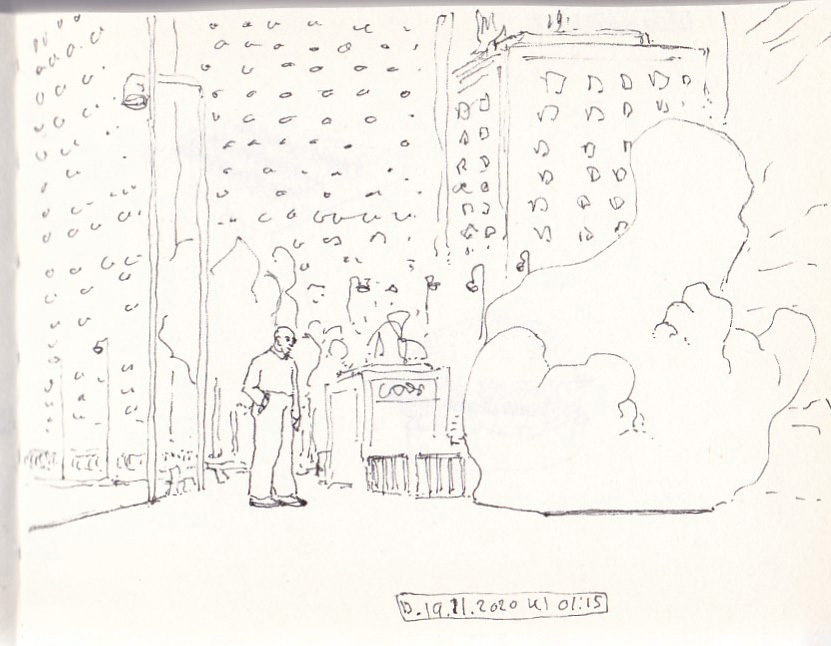 D.19.11.2020 kl 01:15